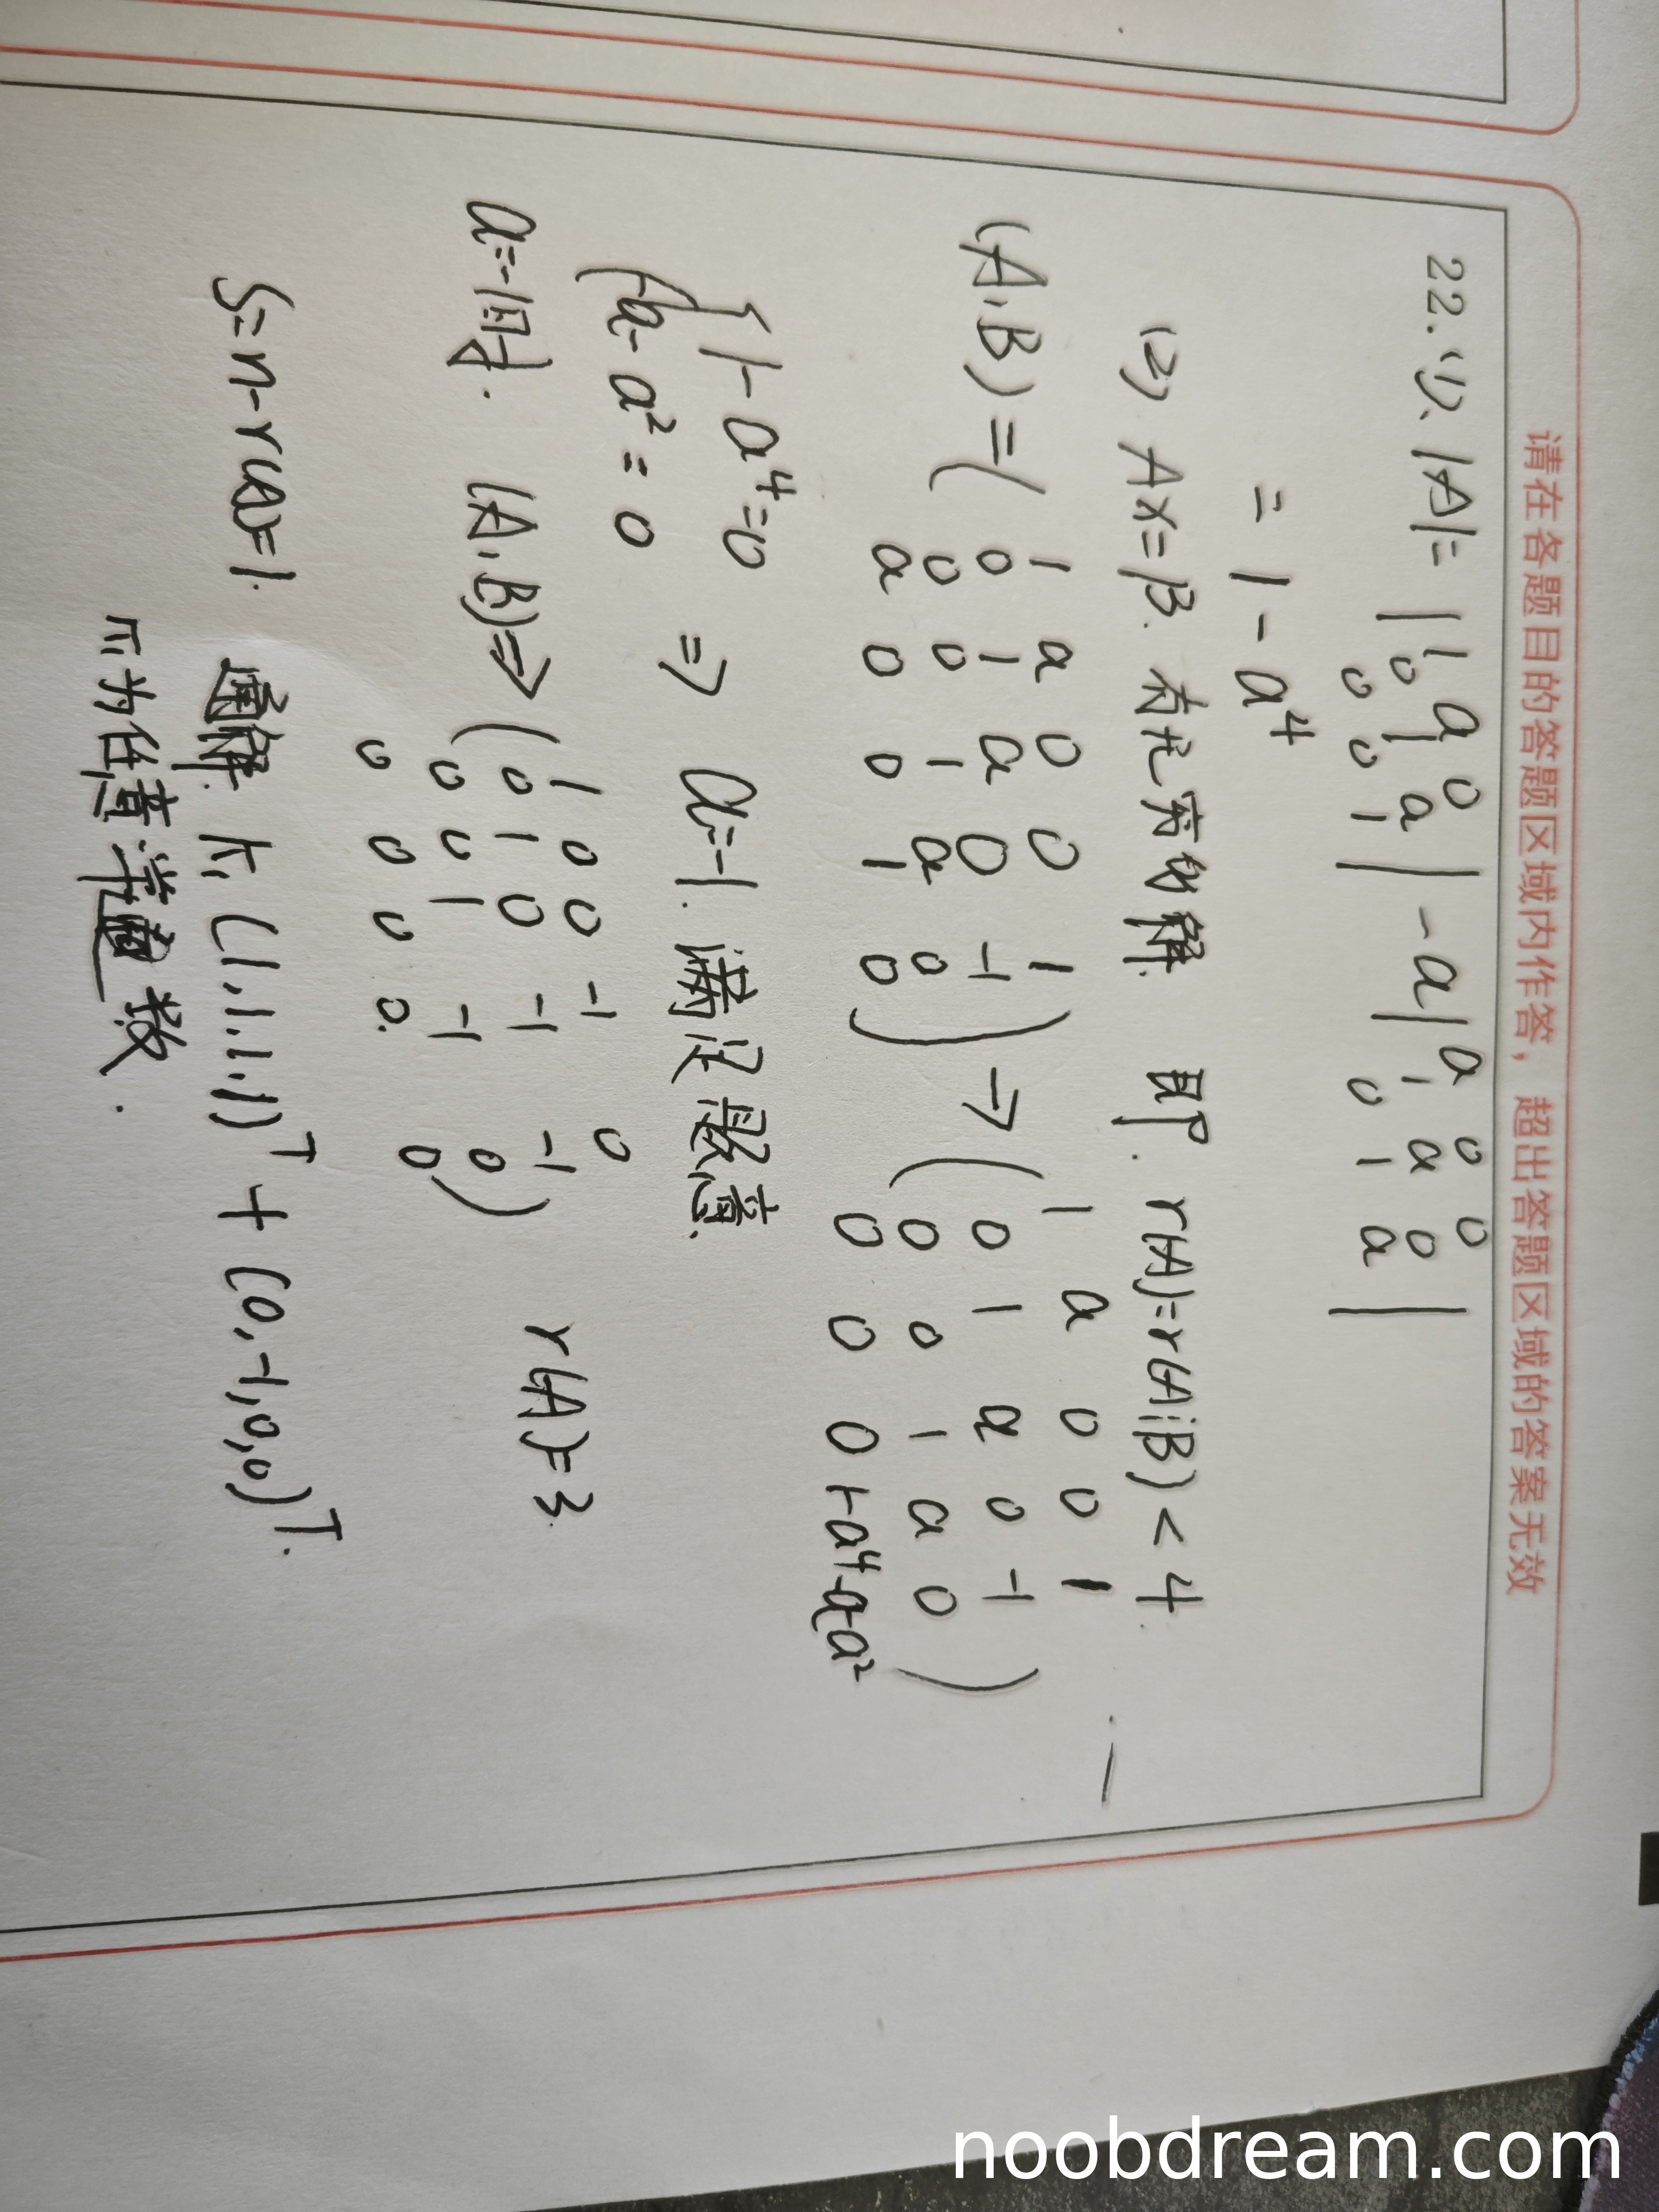 请在各题目的答题区域内作答，超出答题区域的答案无效
22. (1)、|A| = | 1 a 0 | - a | a 0 0 |
0 1 a 1 a 0
0 0 1 0 1 a
= 1 - a⁴
(2) Ax=β. 有无穷多解 即. r(A)=r(A¦B) < 4.
(A,B) = ( 1 a 0 0 1 → ( 1 a 0 0 1
0 1 a 0 -1 0 1 a 0 -1
0 0 1 a 0 0 0 1 a 0
a 0 0 1 0 ) 0 0 0 1-a⁴ -a-a² )
{ 1-a⁴=0
-a-a²=0 ⇒ a=-1. 满足题意.
a=-1时. (A,B) ⇒ ( 1 0 0 -1 0
0 1 0 -1 -1
0 0 1 -1 0
0 0 0 0. 0 ) r(A)=3.
S=n-r(A)=1. 通解 k₁(1,1,1,1)ᵀ + (0,-1,0,0)ᵀ.
k₁为任意常数.
noobdream.com